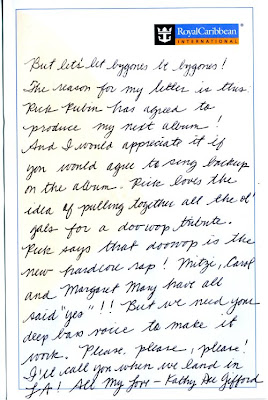 RoyalCaribbean
INTERNATIONAL
But let's let bygones be bygones!
The reason for my letter is this:
Rick Rubin has agreed to
produce my next album!
And I would appreciate it if
you would agree to sing backup
on the album. Rick loves the
idea of pulling together all the ol'
gals for a doowop tribute.
Rick says that doowop is the
new hardcore rap! Mitzi, Carol
and Margaret Mary have all
said "yes"!!! But we need your
deep bass voice to make it
work. Please, please, please!
I'll call you when we land in
LA! All My Love - Kathy Lee Gifford